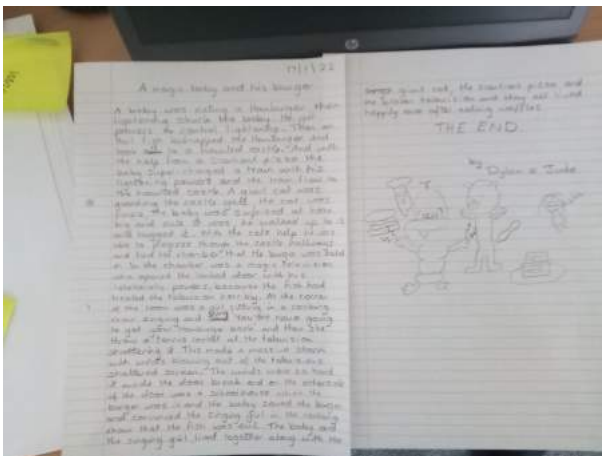 17/1/22
A magic baby and his burger
A baby was eating a hamburger then
lightening struck the baby. He got
powers to control lightening. Then an
evil fish kidnapped the hamburger and
took it to a haunted castle. And with
the help from a sentient pizza the
baby super-charged a train with his
lightening powers and the train flew to
the haunted castle. A giant cat was
guarding the castle itself, the cat was
fussy. The baby was surprised at how
big and cute it was, he walked up to it
and hugged it. With the cats help he was
able to progress through the castle hallways
and find the chamber that the burger was held
in. In the chamber was a magic television
who opened the locked door with his
telekinetic powers, because the fish had
treated the television horribly. At the corner
of the room was a girl sitting in a rocking
chair singing and "You are never going
to get your hamburger back" and then she
threw a tennis ball at the television
shattering it. This made a massive storm
with winds blowing out of the televisions
shattered screen. The winds were so hard
it made the door break and on the otherside
of the door was a schoolhouse which the
burger was in and the baby saved the burger
and convinced the singing girl in the rocking
chair that the fish was evil. The baby and
the singing girl lived together along with the
giant cat, the sentient pizza and
the broken television and they all lived
happily ever after eating waffles.
THE END.
by Dylan & Jude